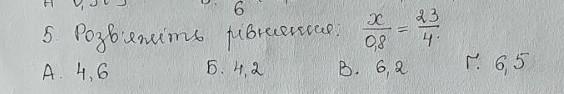 6
5. Розв'яжіть рівняння: x/0,8 = 23/4.
А. 4,6 Б. 4,2 В. 6,2 Г. 6,5